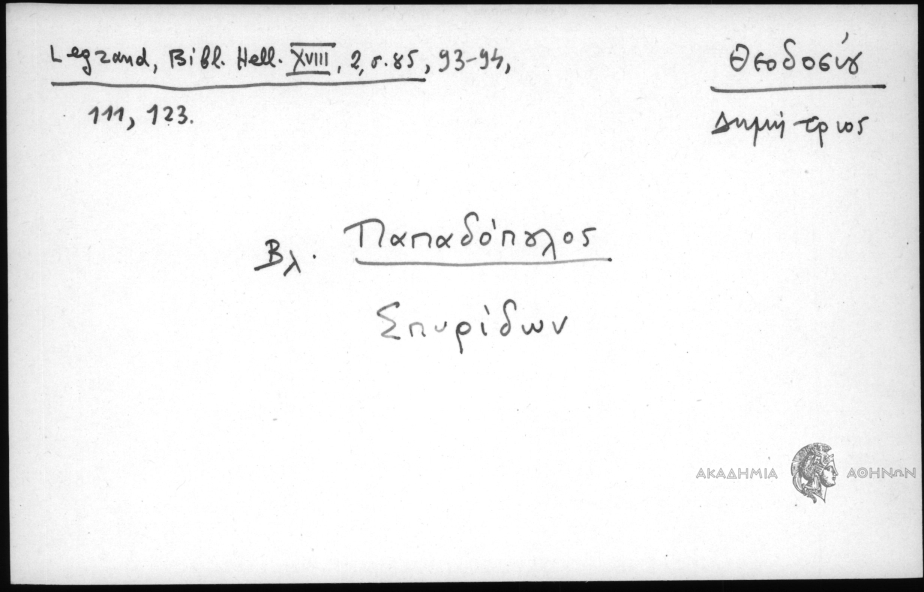 Legrand, Bibl. Hell. XVIII, 2, σ. 85, 93-94,
111, 123.
Θεοδοσίου
Δημήτριος
Βλ. Παπαδόπουλος
Σπυρίδων
ΑΚΑΔΗΜΙΑ ΑΘΗΝΩΝ